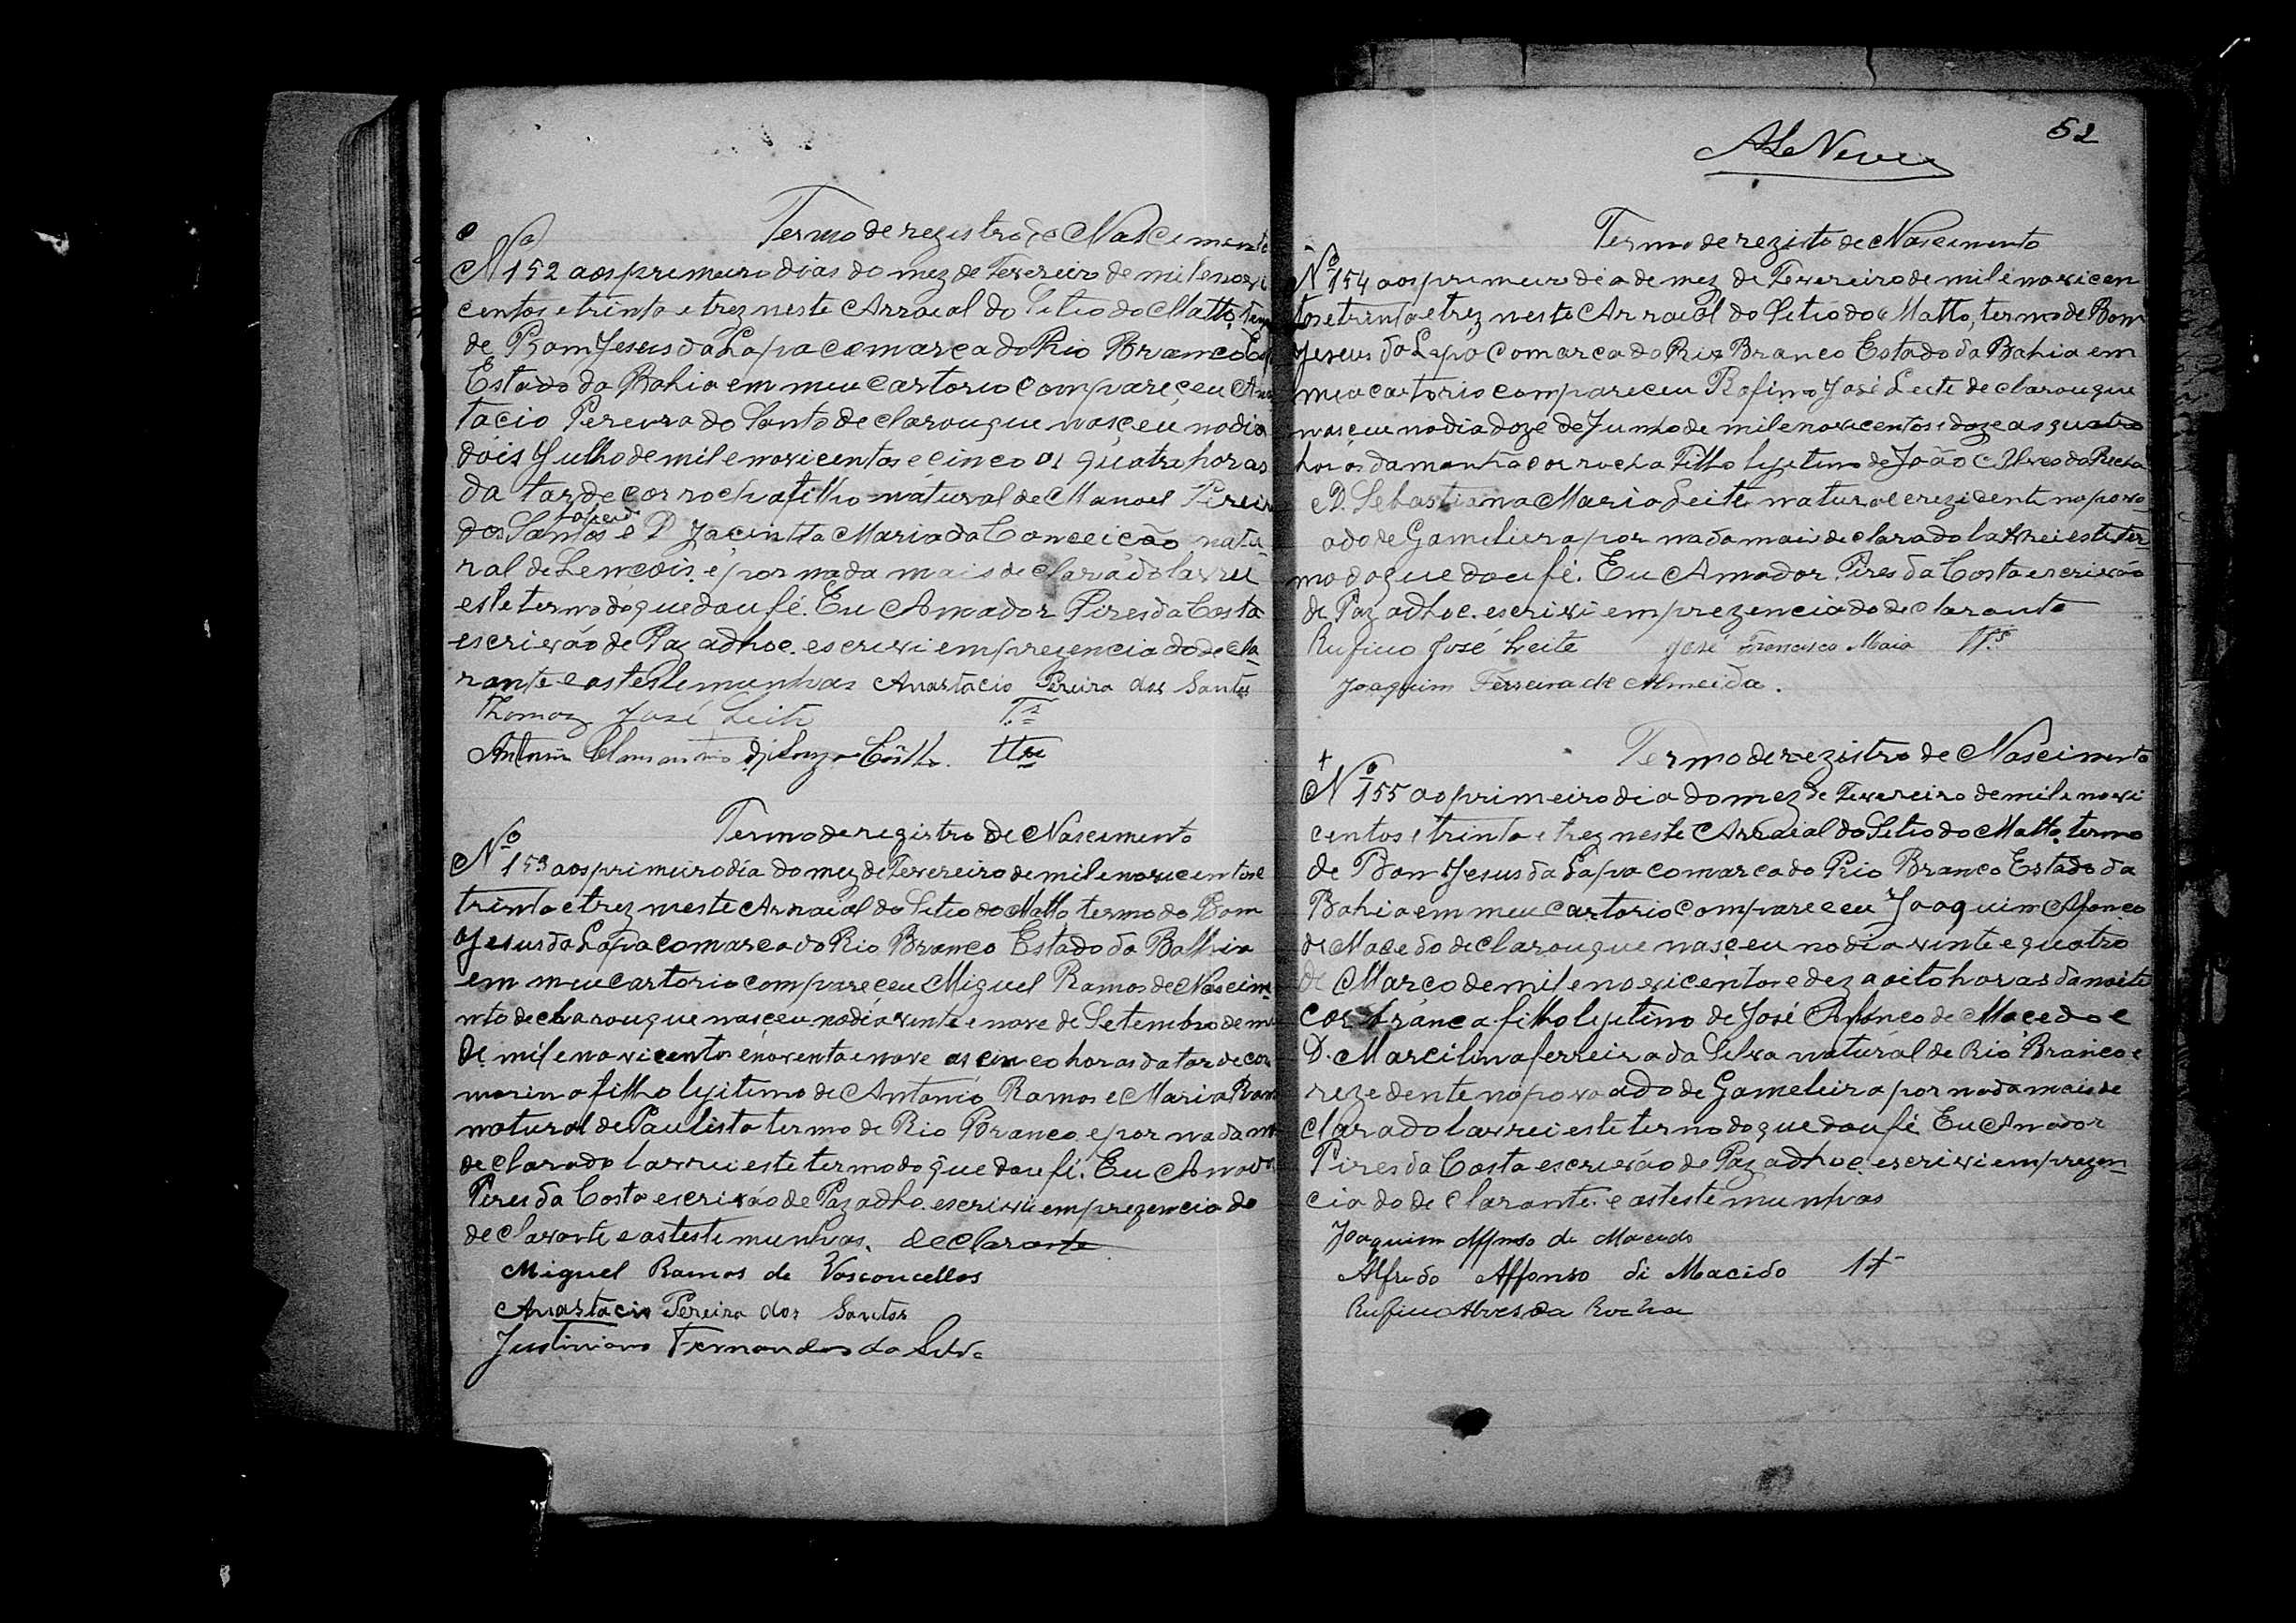 Termo de registro de Nascimento
Nº 152 aos primeiro dias do mez de Fevereiro de mil e novi
centos e trinta e trez neste Arraial do Sitio do Matto, termo
de Bom Jesus da Lapa comarca do Rio Branco
Estado da Bahia em meu cartorio compareçeu Ana
tacio Pereira do Santo declarou que nasçeu no dia
dois Julho de mil e novicentos e cinco as quatro horas
da tarde cor rocha filho natural de Manoel Pereira
dos Santos e D Jacintha Maria da Conceicão natu-
ral de Lencois. e por nada mais declarado lavrei
este termo do que dou fé. Eu Amador Pires da Costa
escrivão de Paz adhoc. escrivi em prezencia do decla-
rante e as testemunhas Anastacio Pereira dos Santos
Thomaz José Leite Tª
Antonio de Souza Coelho. ttª
Termo de registro de Nascimento
Nº 153 aos primeiro dia do mez de Fevereiro de mil e novicentos e
trinta e trez neste Arraial do Sitio do Matto termo do Bom
Jesus da Lapa comarca do Rio Branco Estado da Bathia
em meu cartorio compareçeu Miguel Ramos de Nascim-
nto declarou que nasçeu no dia vinte e nove de Setembro de m
de mil e novicentos e noventa e nove as cinco horas da tarde cor
morin o filho lejitimo de Antonio Ramos e Maria Ramo
natural de Paulista termo de Rio Branco e por nada m
declarado lavrui este termo do que dou fé. Eu Amador
Pires da Costa escrivão de Paz adho. escrivi em prezencia do
declarante e as testemunhas. declarante
Miguel Ramos de Vasconcellos
Anastacio Pereira dos Santos
Justiniano Fernandes da Silva
52
Termo de rezisto de Nascimento
Nº 154 aos primeiro dia de mez de Fevereiro de mil e novicen
tos e trinta e trez neste Arraial do Sitio do Matto, termo de Bom
Jeseus da Lapa Comarca do Rio Branco Estado da Bahia em
meu cartorio compareceu Rofino José Leite declarou que
nasçeu no dia doze de Junho de mil e novicentos e doze as quatro
horas da manhã cor rocha Filho lejitimo de João Alves da Rocha
e D. Sebastiana Maria Leite natural e rezidente no povo
ado de Gameliera por nada mais declarado lavrei este ter-
mo do que dou fé. Eu Amador Pires da Costa escrivão
de Paz adhoc. escrivi em prezencia do declarante
Rufino José Leite José Francisco Maia Ttª
Joaquim Ferreira de Almeida.
Termo de rezistro de Nascimento
Nº 155 ao primeiro dia do mez de Fevereiro de mil e novi
centos e trinta e trez neste Arraial do Sitio do Matto, termo
de Bom Jesus da Lapa comarca do Rio Branco Estado da
Bahia em meu cartorio compareceu Joaquim Afonço
de Macedo declarou que nasçeu no dia vinte e quatro
de Março de mil e novicentos e dez a oito horas da noite
cor branca filho lejitimo de José Afonço de Macedo e
D. Marcilina ferreira da Silva natural de Rio Branco e
rezedente no povoado de Gameleira por nada mais de
clarado lavrei este termo do que dou fé Eu Amador
Pires da Costa escrivão de Paz adhoc. escrivi em prezen-
cia do declarante. e as testemunhas
Joaquim Affonso de Macedo
Alfredo Affonso di Macido 1t
Rufino Alves da Rocha